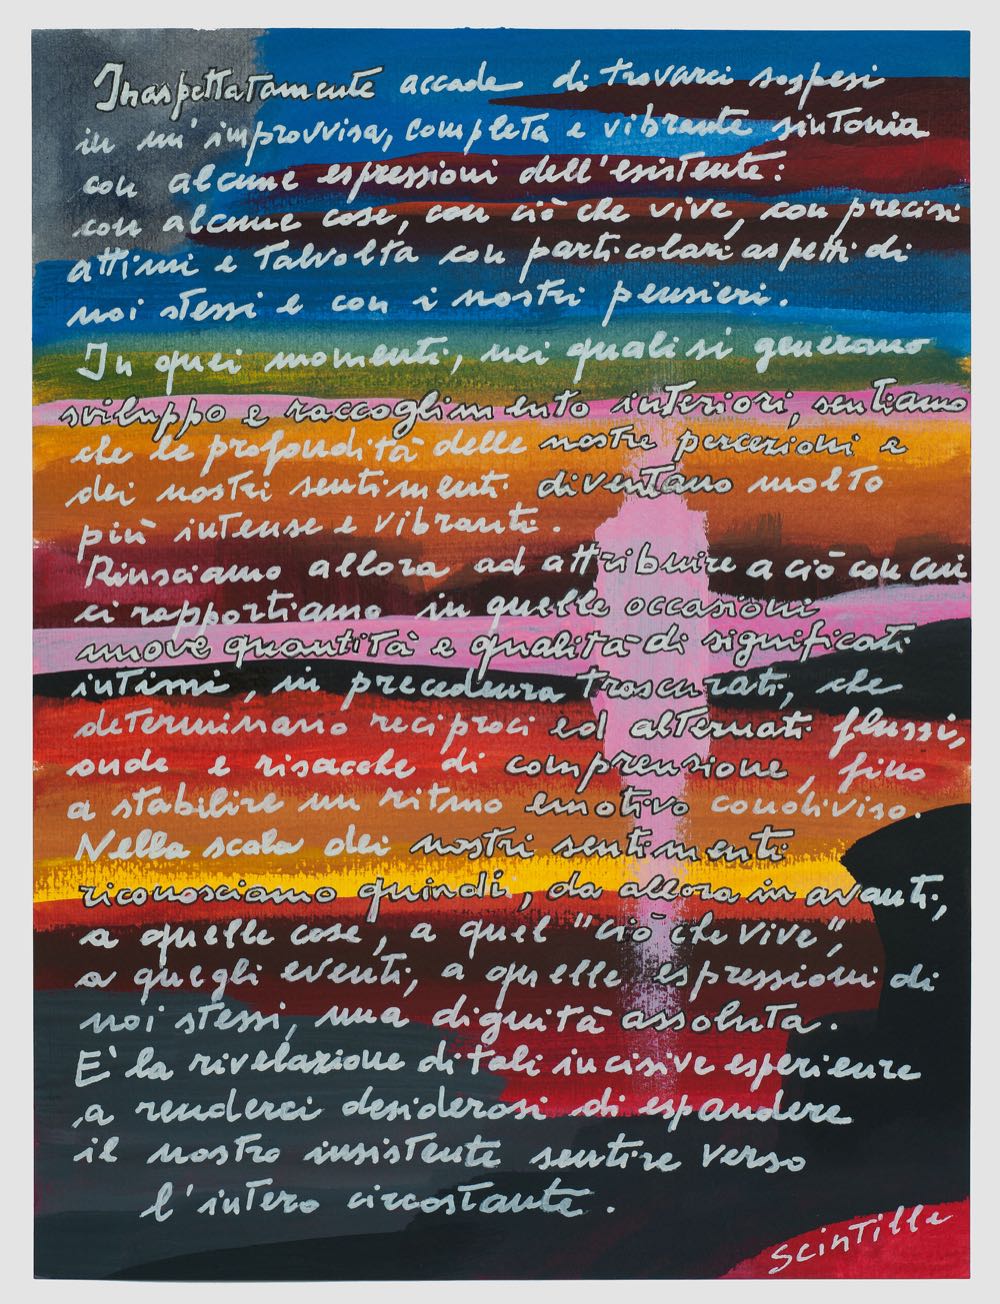 Inaspettatamente accade di trovarci sospesi
in un'improvvisa, completa e vibrante sintonia
con alcune espressioni dell'esistente:
con alcune cose, con ciò che vive, con precisi
attimi e talvolta con particolari aspetti di
noi stessi e con i nostri pensieri.
In quei momenti, nei quali si generano
sviluppo e raccoglimento interiori, sentiamo
che le profondità delle nostre percezioni e
dei nostri sentimenti diventano molto
più intense e vibranti.
Riusciamo allora ad attribuire a ciò con cui
ci rapportiamo in quelle occasioni
nuove quantità e qualità di significati
intimi, in precedenza trascurati, che
determinano reciproci ed alternati flussi,
onde e risacche di comprensione, fino
a stabilire un ritmo emotivo condiviso.
Nella scala dei nostri sentimenti
riconosciamo quindi, da allora in avanti,
a quelle cose, a quel "ciò che vive",
a quegli eventi, a quelle espressioni di
noi stessi, una dignità assoluta.
E' la rivelazione di tali incisive esperienze
a renderci desiderosi di espandere
il nostro insistente sentire verso
l'intero circostante.
Scintille